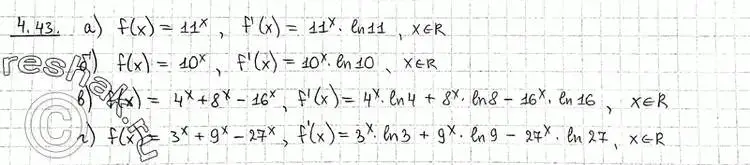 4.43. а) f(x) = 11ˣ, f'(x) = 11ˣ · ln 11, x∈R
б) f(x) = 10ˣ, f'(x) = 10ˣ · ln 10, x∈R
в) f(x) = 4ˣ + 8ˣ - 16ˣ, f'(x) = 4ˣ · ln 4 + 8ˣ · ln 8 - 16ˣ · ln 16, x∈R
г) f(x) = 3ˣ + 9ˣ - 27ˣ, f'(x) = 3ˣ · ln 3 + 9ˣ · ln 9 - 27ˣ · ln 27, x∈R
© reshak.ru